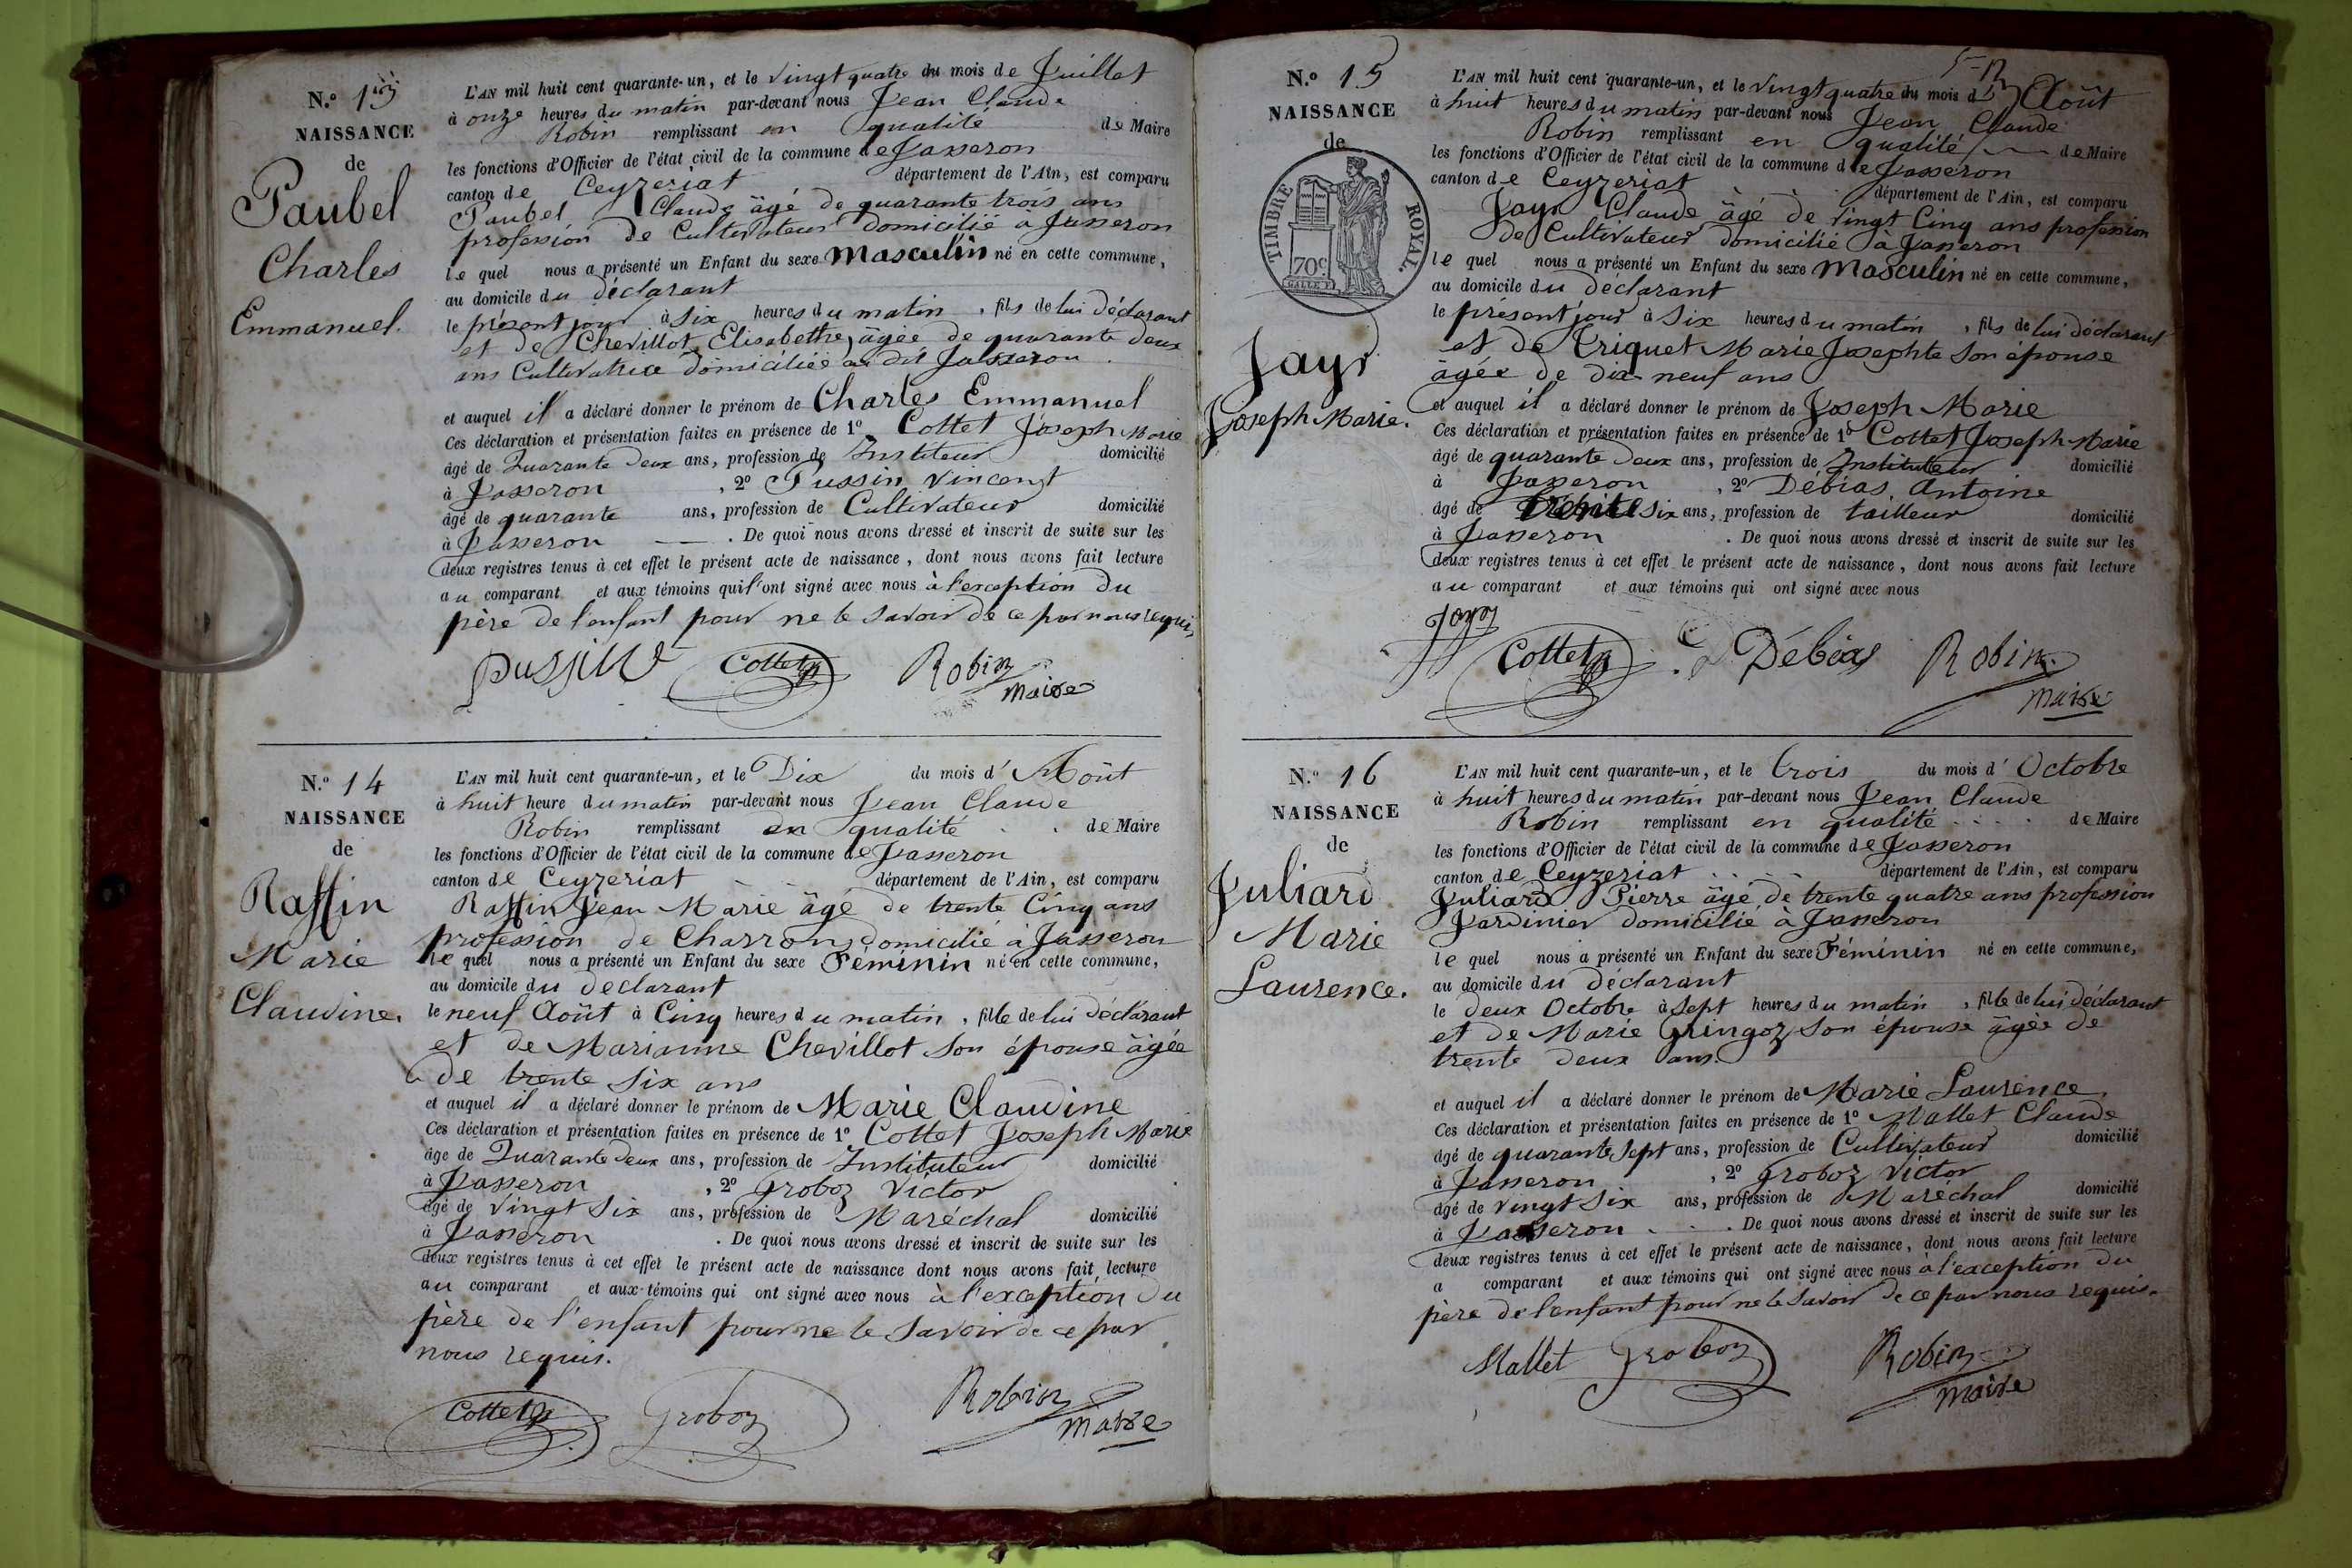 N.º 13
NAISSANCE
de
Paubel
Charles
Emmanuel.
L'AN mil huit cent quarante-un, et le vingt quatre du mois de Juillet
à onze heures du matin par-devant nous Jean Claude
Robin remplissant en qualité de Maire
les fonctions d'Officier de l'état civil de la commune de Jasseron
canton de Ceyzeriat département de l'Ain, est comparu
Paubel Claude âgé de quarante trois ans
profession de Cultivateur domicilié à Jasseron
le quel nous a présenté un Enfant du sexe Masculin né en cette commune,
au domicile du déclarant
le présent jour à six heures du matin, fils de lui déclarant
et de Chevillot Elisabethe, âgée de quarante deux
ans Cultivatrice domiciliée au dit Jasseron
et auquel il a déclaré donner le prénom de Charles Emmanuel
Ces déclaration et présentation faites en présence de 1º Cottet Joseph Marie
âgé de Quarante deux ans, profession de Instituteur domicilié
à Jasseron, 2º Pussin Vincent
âgé de quarante ans, profession de Cultivateur domicilié
à Jasseron. De quoi nous avons dressé et inscrit de suite sur les
deux registres tenus à cet effet le présent acte de naissance, dont nous avons fait lecture
au comparant et aux témoins qui l'ont signé avec nous à l'exception du
père de l'enfant pour ne le savoir de ce par nous requis,
Cottet Robin
maire
N.º 14
NAISSANCE
de
Raffin
Marie
Claudine.
L'AN mil huit cent quarante-un, et le Dix du mois d' Août
à huit heure du matin par-devant nous Jean Claude
Robin remplissant en qualité de Maire
les fonctions d'Officier de l'état civil de la commune de Jasseron
canton de Ceyzeriat département de l'Ain, est comparu
Raffin Jean Marie âgé de trente Cinq ans
profession de Charron, domicilié à Jasseron
le quel nous a présenté un Enfant du sexe Féminin né en cette commune,
au domicile du déclarant
le neuf Août à Cinq heures du matin, fille de lui déclarant
et de Marianne Chevillot son épouse âgée
de trente six ans
et auquel il a déclaré donner le prénom de Marie Claudine
Ces déclaration et présentation faites en présence de 1º Cottet Joseph Marie
âge de Quarante deux ans, profession de Instituteur domicilié
à Jasseron, 2º Groboz Victor
âgé de vingt six ans, profession de Maréchal domicilié
à Jasseron. De quoi nous avons dressé et inscrit de suite sur les
deux registres tenus à cet effet le présent acte de naissance dont nous avons fait lecture
au comparant et aux témoins qui ont signé avec nous à l'exception du
père de l'enfant pour ne le savoir de ce par
nous requis.
Cottet Groboz Robin
maire
N.º 15
NAISSANCE
de
TIMBRE ROYAL.
70c
Jayr
Joseph Marie.
L'AN mil huit cent quarante-un, et le vingt quatre du mois d' Août
à huit heures du matin par-devant nous Jean Claude
Robin remplissant en qualité de Maire
les fonctions d'Officier de l'état civil de la commune de Jasseron
canton de Ceyzeriat département de l'Ain, est comparu
Jayr Claude âgé de vingt Cinq ans profession
de Cultivateur domicilié à Jasseron
le quel nous a présenté un Enfant du sexe Masculin né en cette commune,
au domicile du déclarant
le présent jour à six heures du matin, fils de lui déclarant
et de Triquet Marie Josephte son épouse
âgée de dix neuf ans
et auquel il a déclaré donner le prénom de Joseph Marie
Ces déclaration et présentation faites en présence de 1º Cottet Joseph Marie
âgé de quarante deux ans, profession de Instituteur domicilié
à Jasseron, 2º Débias Antoine
âgé de trente six ans, profession de tailleur domicilié
à Jasseron. De quoi nous avons dressé et inscrit de suite sur les
deux registres tenus à cet effet le présent acte de naissance, dont nous avons fait lecture
au comparant et aux témoins qui ont signé avec nous
Cottet Débias Robin
maire
N.º 16
NAISSANCE
de
Juliard
Marie
Laurence.
L'AN mil huit cent quarante-un, et le trois du mois d' Octobre
à huit heures du matin par-devant nous Jean Claude
Robin remplissant en qualité de Maire
les fonctions d'Officier de l'état civil de la commune de Jasseron
canton de Ceyzeriat département de l'Ain, est comparu
Juliard Pierre âgé de trente quatre ans profession
Jardinier domicilié à Jasseron
le quel nous a présenté un Enfant du sexe Féminin né en cette commune,
au domicile du déclarant
le deux Octobre à sept heures du matin, fille de lui déclarant
et de Marie Gringoz son épouse âgée de
trente deux ans.
et auquel il a déclaré donner le prénom de Marie Laurence
Ces déclaration et présentation faites en présence de 1º Mallet Claude
âgé de quarante sept ans, profession de Cultivateur domicilié
à Jasseron, 2º Groboz Victor
âgé de vingt six ans, profession de Maréchal domicilié
à Jasseron. De quoi nous avons dressé et inscrit de suite sur les
deux registres tenus à cet effet le présent acte de naissance, dont nous avons fait lecture
a comparant et aux témoins qui ont signé avec nous à l'exception du
père de l'enfant pour ne le savoir de ce par nous requis.
Mallet Groboz Robin
maire